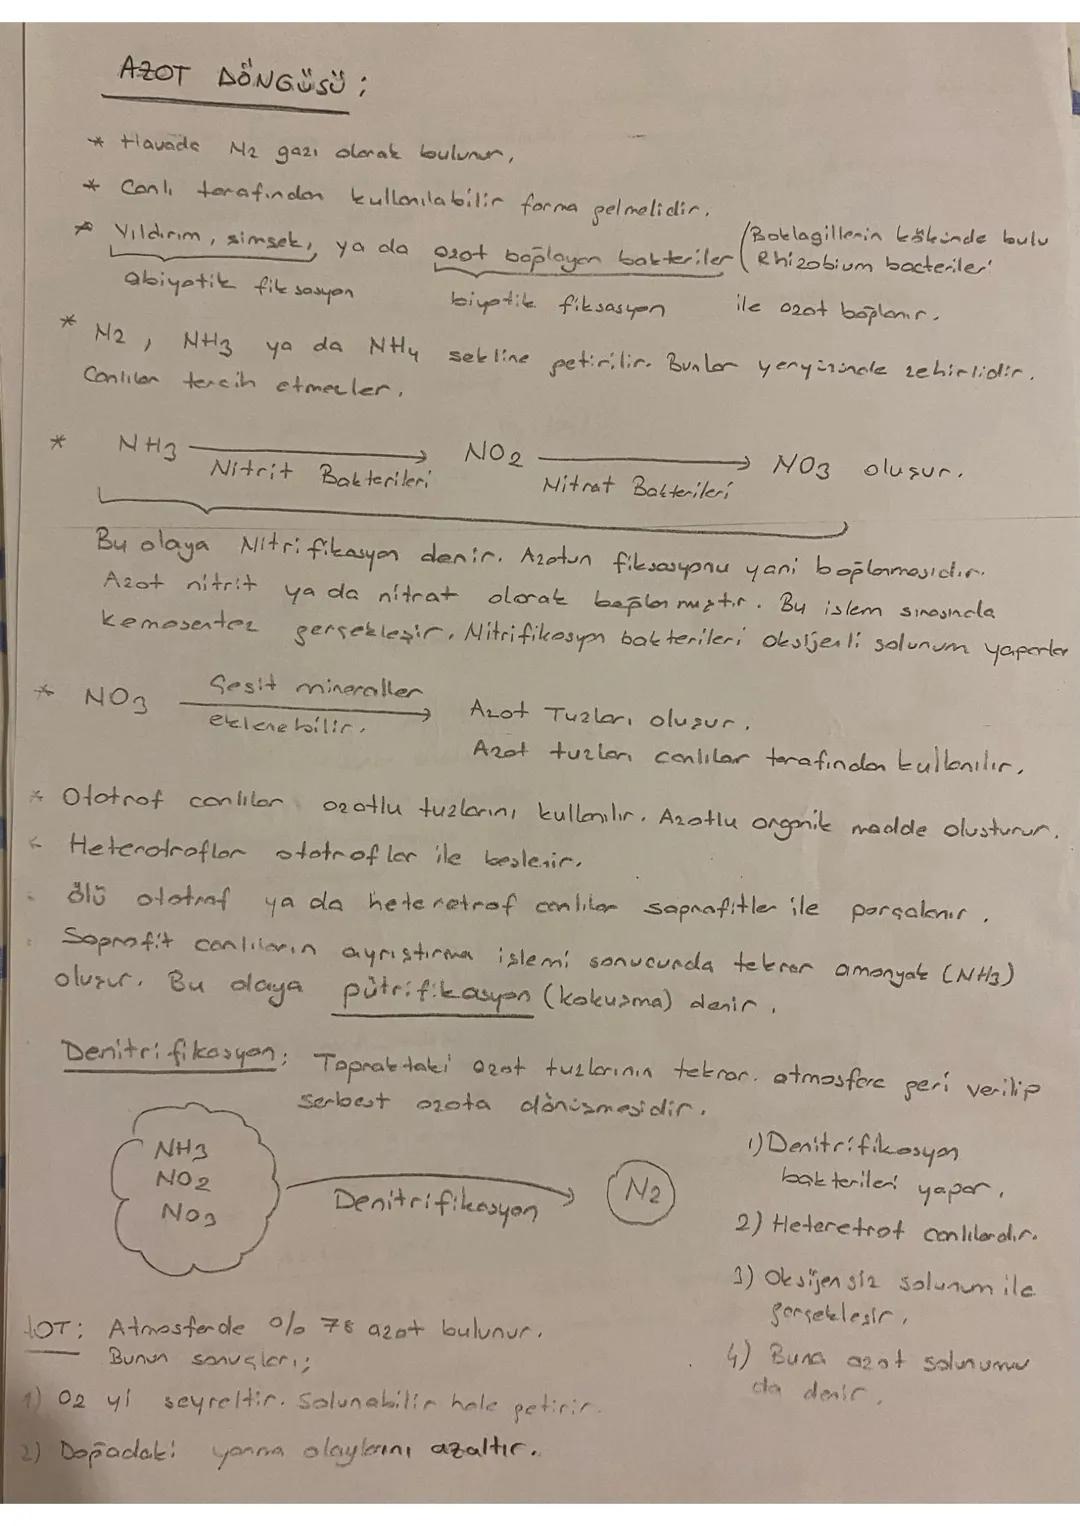 AZOT DÖNGÜSÜ;
* Havada N2 gazı olarak bulunur,
* Canlı tarafından kullanılabilir forma gelmelidir.
* Yıldırım, simsek, ya da azot bağlayan bakteriler (Baklagillerin kökünde bulu
Rhizobium bacteriler'
abiyotik fiksasyon biyotik fiksasyon ile azot bağlanır.
* N2, NH3 ya da NH4 sekline getirilir. Bunlar yeryüzünde zehirlidir.
Canlılar tercih etmezler.
* NH3 → NO2 → NO3 oluşur.
Nitrit Bakterileri Nitrat Bakterileri
Bu olaya Nitrifikasyon denir. Azotun fiksasyonu yani bağlanmasıdır.
Azot nitrit ya da nitrat olarak bağlanmıştır. Bu islem sırasında
kemosentez gerçekleşir. Nitrifikasyon bakterileri oksijenli solunum yaparlar
* NO3 → Azot Tuzları oluşur.
Çesit mineraller
eklenebilir.
Azot tuzları canlılar tarafından kullanılır.
* Ototrof canlılar azotlu tuzlarını kullanılır. Azotlu organik madde olusturur.
* Heterotroflar ototroflar ile beslenir.
ölü ototrof ya da heteretrof canlılar saprafitler ile parçalanır.
Saprofit canlıların ayrıştırma işlemi sonucunda tekrar amonyak (NH3)
oluşur. Bu olaya pütrifikasyon (kokuşma) denir.
Denitrifikasyon; Topraktaki azot tuzlarının tekrar. atmosfere geri verilip
serbest azota dönüşmesidir.
NH3
NO2
NO3
Denitrifikasyon →
N2
1) Denitrifikasyon
bakterileri yapar.
2) Heteretrof canlılardır.
3) Oksijensiz solunum ile
gerçekleşir.
4) Buna azot solunumu
da denir.
NOT: Atmosferde %78 azot bulunur.
Bunun sonuçları;
1) O2 yi seyreltir. Solunabilir hale getirir.
2) Doğadaki yanma olaylarını azaltır.